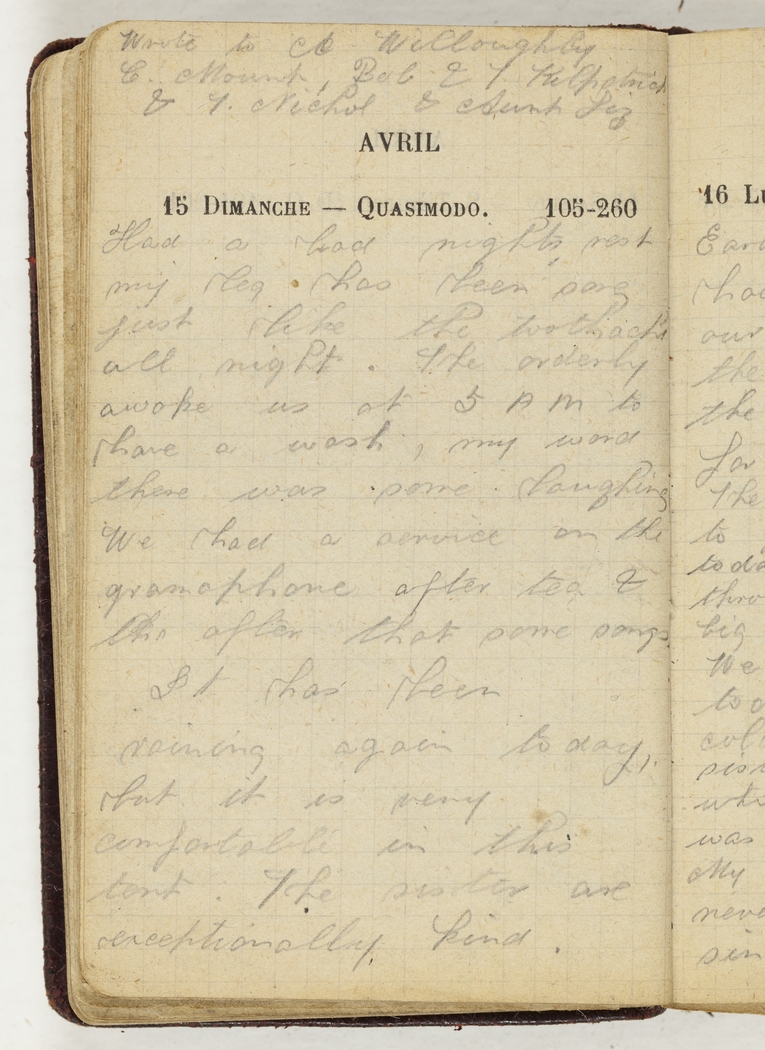 Wrote to Willoughby
C. Mount, Bob & J. Kilpatrick
& J. Nichol & Aunt Liz
AVRIL
15 DIMANCHE — QUASIMODO. 105-260
Had a bad nights rest
my leg has been sore
just like the toothache
all night. The orderly
awoke us at 5 AM to
have a wash, my word
there was some laughing
We had a service on the
gramaphone after tea &
after that some songs
It has been
raining again today,
but it is very
comfortable in this
tent. The sister are
exceptionally kind.
16 LU
Ear
ha
our
the
the
for
The
to
toda
thro
big
We
to
col
sis
whi
was
My
neve
sin